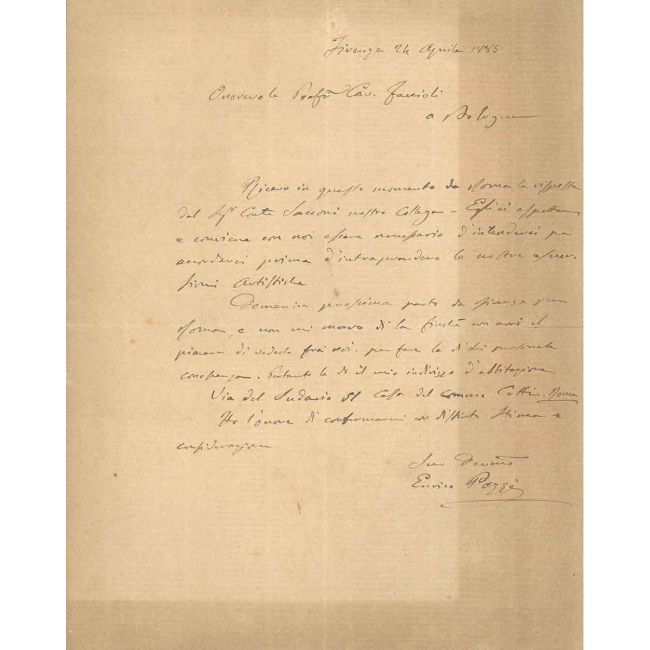 Firenze 24 Aprile 1885
Onorevole Profre Cav. Faccioli
a Bologna
Ricevo in questo momento da Roma la risposta
dal Sigr Conte Sacconi nostro Collega - Egli ci aspetta
e conviene con noi essere necessario d'intenderci per
accordarci prima d'intraprendere le nostre escur-
sioni Artistiche
Domenica prossima parto da Firenze per
Roma, e non mi movo di là finchè non avrò il
piacere di vederla frai noi. per fare la di Lei personale
conoscenza. Pertanto le do il mio indirizzo d'abbitazione
Via del Sudario 51 Casa del Roma
Ho l'onore di confermarmi con distinta Stima e
considerazione
Suo Devmo
Enrico Pazzi